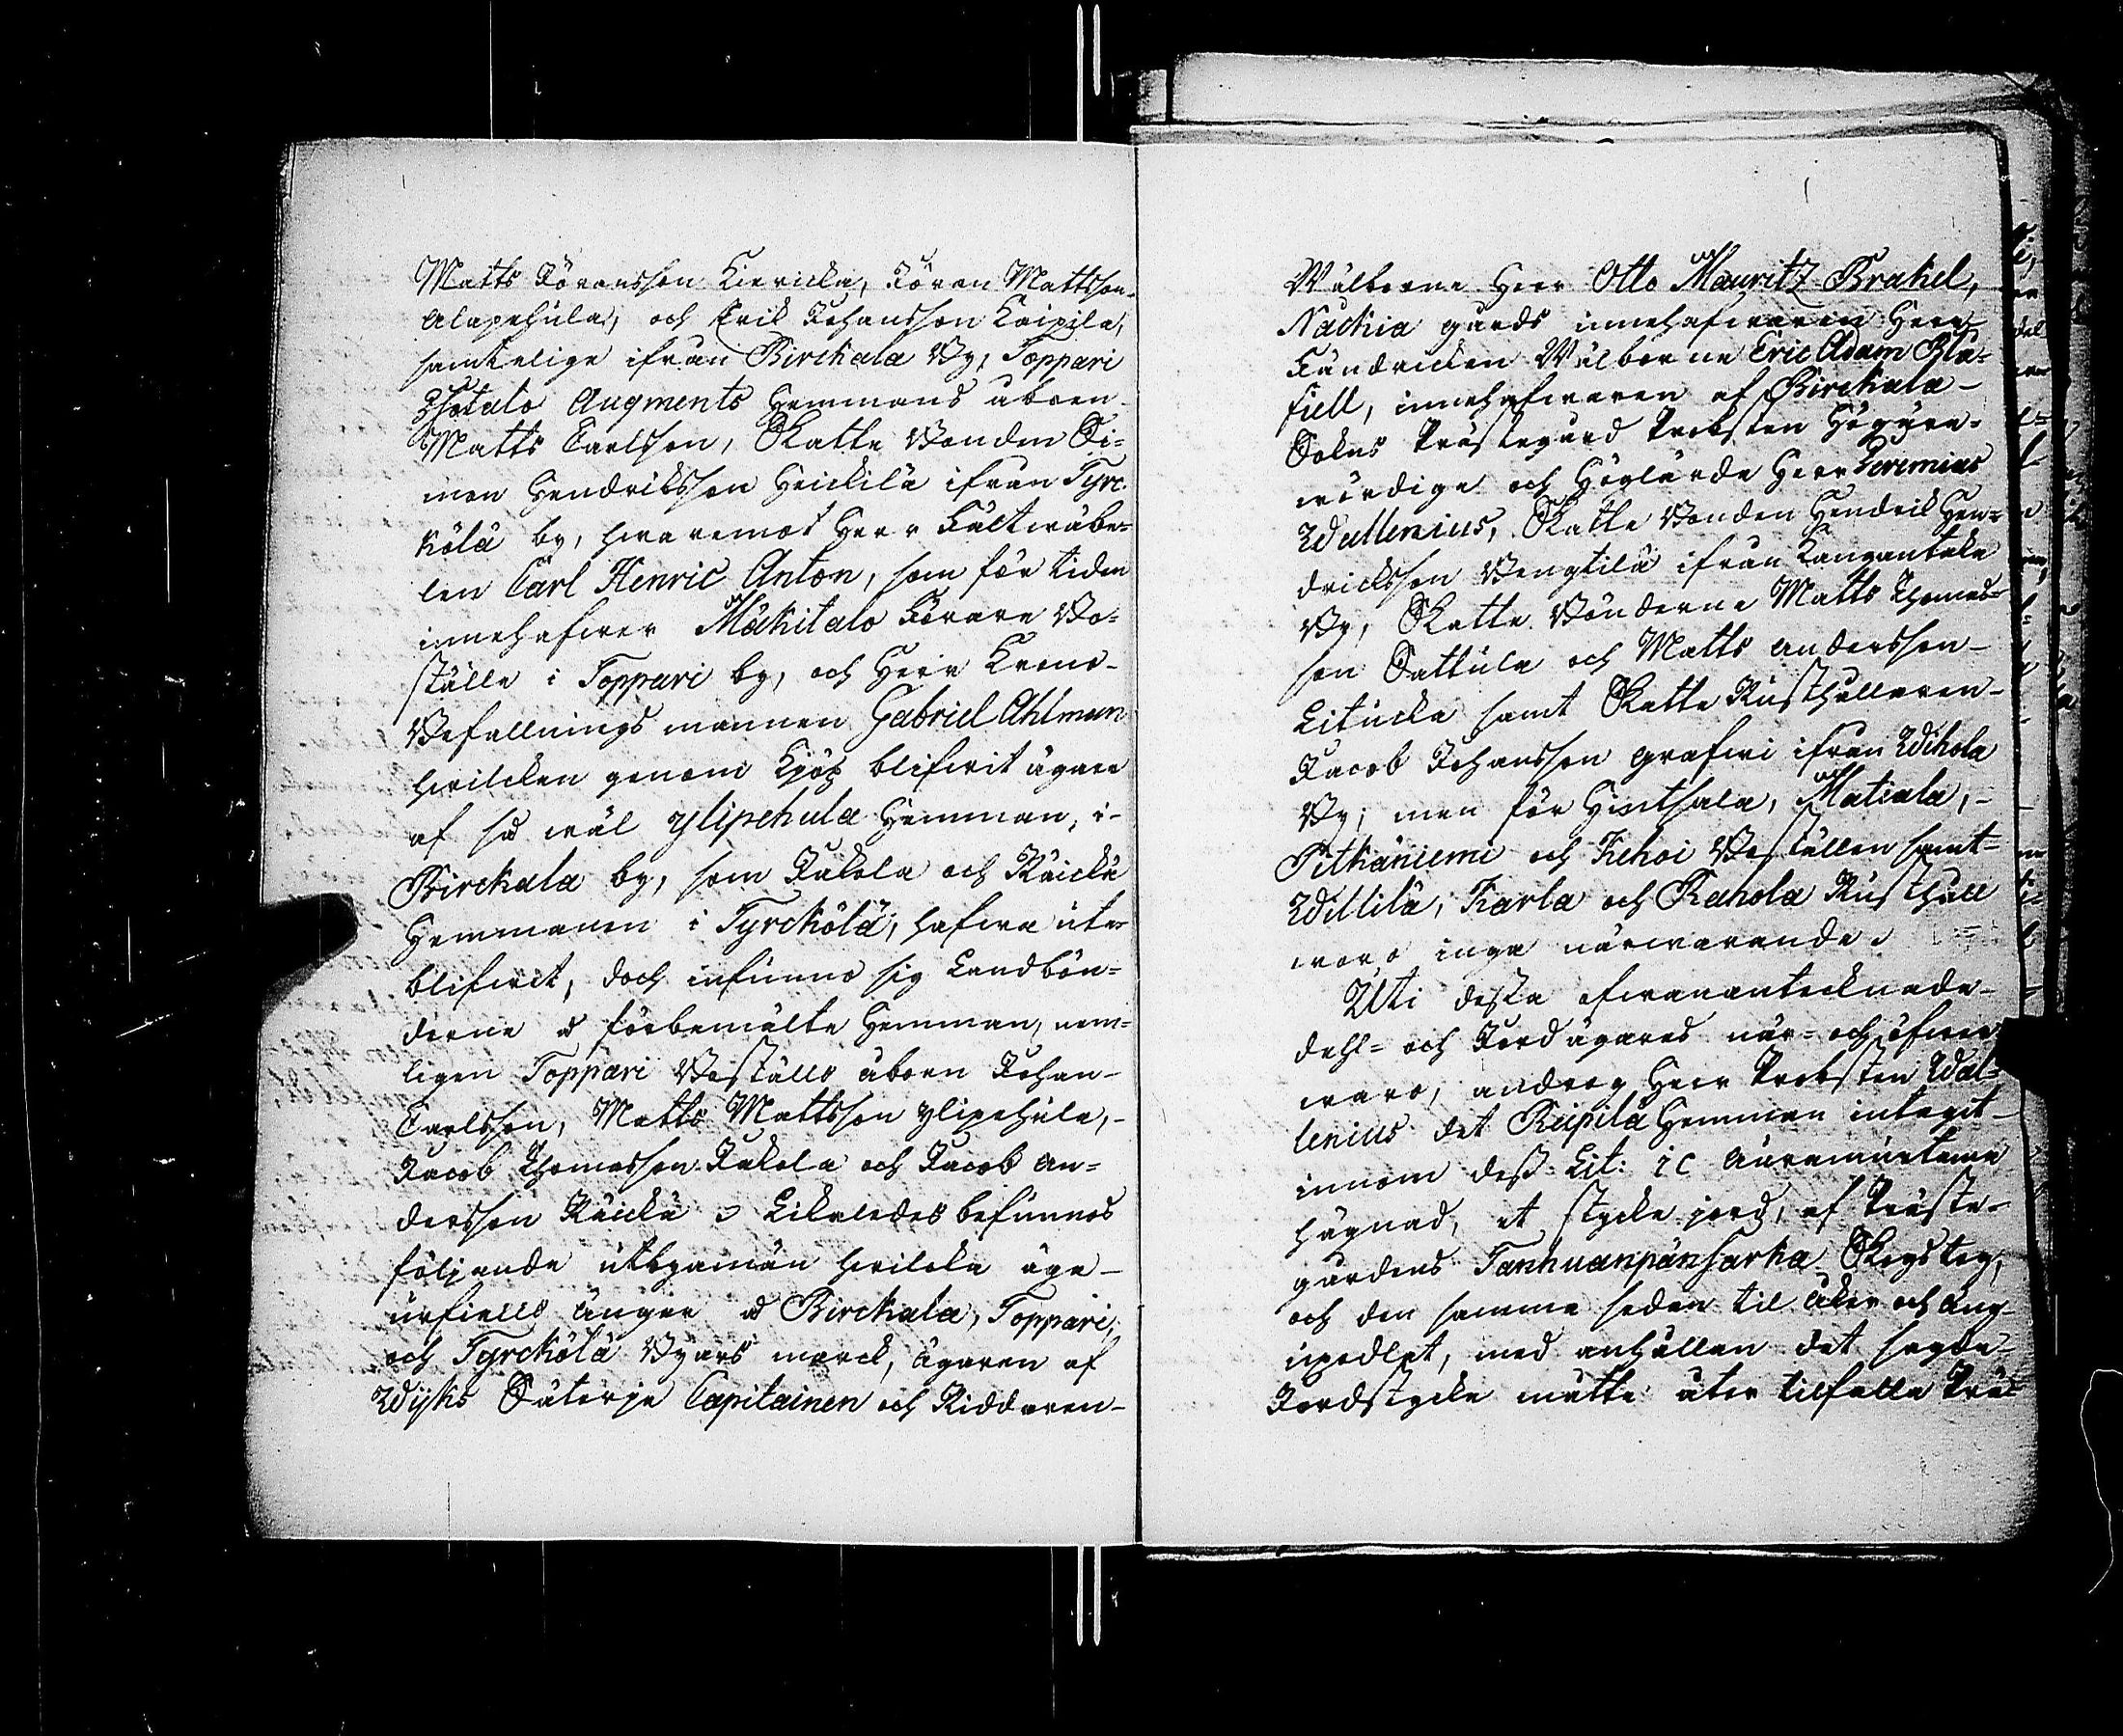 Matts Jöransson Kiericka, Jöran Mattsson
Alapehula, och Erik Johansson Kaipila,
samtelige ifrån Birckala By, Toppari
Isotalo Augments Hemmans åboen
Matts Carlsson, Skatte Bonden Si-
mon Hendriksson Heickilä ifrån Tyrc-
kölä by, hwaremot Herr Fältwäbe-
len Carl Henric Anton, som för tiden
innehafwer Mäkitalo Förare Bo-
ställe i Toppari by, och Herr Krono-
Befallningsmannen Gabriel Ahlman
hwilcken genom Kjöp blifwit ägare
af så wäl Ylipehula Hemman, i
Birckala by, som Jukola och Räickä
Hemmanen i Tyrckölä, hafwa ute-
blifwit, doch infunno sig Landbön-
derne å förbemälte Hemman, nem-
ligen Toppari Boställs åboen Johan
Carlsson, Matts Mattsson Ylipehula,
Jacob Thomasson Jukola och Jacob An-
dersson Räickä. Likaledes befunnos
följande utbyamän hwilcka äga
urfiells ängar å Birckala, Toppari,
och Tyrckölä Byars marck, ägaren af
Wijks Säterje Capitainen och Riddaren
Wälborne Herr Otto Mauritz Brakel,
Nackia gårds innehafwaren Herr
Fändricken Wälborne Eric Adam Blå-
fiell, innehafwaren af Birckala
Sokns Prästegård Probsten Högäre-
wördige och Höglärde Herr Jeremias
Wallenius, Skatte Bonden Hendrik Hen-
dricksson Bengtilä ifrån Kangantaka
By, Skatte Bönderne Matts Thomas-
son Sattula och Matts Andersson
Litucka samt Skatte Rusthållaren
Jacob Johansson Grafwi ifrån Wihola
By; men för Hintsala, Matiala,
Pitkäniemi och Kehoi Boställen samt
Willilä, Karla och Rahola Rusthåll
woro inga närwarande.
Uti dessa ofwanantecknade
dehl- och Jordägares när- och öfwer
waro, androg Herr Probsten Wal-
lenius det Riipilä Hemman intagit
innom dess Lit: i C
hägnad, et stycke jord, af Präste-
gårdens Tanhuanpänsarka Skogsteg,
och den samma sedan til åker och äng
upodlat, med anhållan det sagde
Jordstycke måtte åter tilfalla Prä-